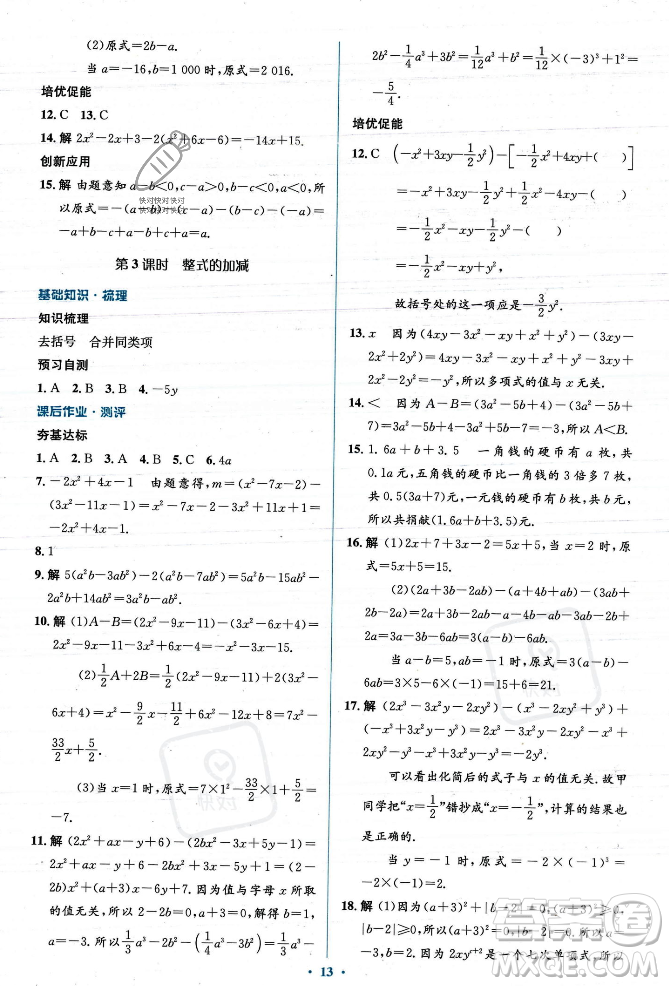 (2)原式=2b-a.
当 a=-16,b=1 000 时,原式=2 016.
培优促能
12. C 13. C
14. 解 2x²-2x+3-2(x²+6x-6)=-14x+15.
创新应用
15. 解 由题意知 a-b<0,c-a>0,b-c<0,-a<0,所
以原式=-(a-b)-(c-a)-(b-c)-(-a)=
-a+b-c+a-b+c+a=a.
第 3 课时 整式的加减
基础知识·梳理
知识梳理
去括号 合并同类项
预习自测
1. A 2. B 3. B 4. -5y
课后作业·测评
夯基达标
1. A 2. B 3. A 4. B 5. C 6. 4a
7. -2x²+4x-1 由题意得,m=(x²-7x-2)-
(3x²-11x-1)=x²-7x-2-3x²+11x+1=
-2x²+4x-1.
8. 1
9. 解 5(a²b-3ab²)-2(a²b-7ab²)=5a²b-15ab²-
2a²b+14ab²=3a²b-ab².
10. 解 (1)A-B=(2x²-9x-11)-(3x²-6x+4)=
2x²-9x-11-3x²+6x-4=-x²-3x-15.
(2)1/2A+2B=1/2(2x²-9x-11)+2(3x²-
6x+4)=x²-9/2x-11/2+6x²-12x+8=7x²-
33/2x+5/2.
(3)当 x=1 时,原式=7×1²-33/2×1+5/2=
-7.
11. 解 (2x²+ax-y+6)-(2bx²-3x+5y-1)=
2x²+ax-y+6-2bx²+3x-5y+1=(2-
2b)x²+(a+3)x-6y+7. 因为值与字母 x 所取
的值无关,所以 2-2b=0,a+3=0. 所以 b=1,
a=-3. 当 a=-3,b=1 时,1/3a³-2b²-1/4a³+3b²=1/3a³-
2b²-1/4a³+3b²=1/12a³+b²=1/12×(-3)³+1²=
-5/4.
培优促能
12. C (-x²+3xy-1/2y²)-[-1/2x²+4xy+( )]
=-x²+3xy-1/2y²+1/2x²-4xy-( )
=-1/2x²-xy-1/2y²-( )
=-1/2x²-xy+y²
故括号处的这一项应是-3/2y².
13. x 因为(4xy-3x²-xy+x²+y²)-(3xy-
2x²+2y²)=4xy-3x²-xy+x²+y²-3xy+
2x²-2y²=-y²,所以多项式的值与 x 无关.
14. < 因为 A-B=(3a²-5b+4)-(3a²-5b+
7)=3a²-5b+4-3a²+5b-7=-3<0,所以 A<B.
15. 1. 6a+b+3. 5 一角钱的硬币有 a 枚,共
0.1a元,五角钱的硬币比一角钱的多 7 枚,
共 0.5(3a+7)元,一元钱的硬币有 b 枚,共b元,
所以共捐献(1.6a+b+3.5)元.
16. 解 (1)2x+7+3x-2=5x+5,当 x=2 时,原
式=5x+5=15.
(2)(2a+3b-2ab)-(a+4b+ab)-(3ab-
2a+2b)=2a+3b-2ab-a-4b-ab-3ab+
2a-2b=3a-3b-6ab.
当 a-b=5,ab=-1 时,原式=3(a-b)-
6ab=3×5-6×(-1)=15+6=21.
17. 解 (2x³-3x²y-2xy²)-(x³-2xy²+y³)+
(-x³+3x²y-y³)=2x³-3x²y-2xy²-x³+
2xy²-y³-x³+3x²y-y³=-2y³.
可以看出化简后的式子与 x 的值无关. 故甲
同学把“x=1/2”错抄成“x=-1/2”,计算的结果也
是正确的.
当 y=-1 时,原式=-2×(-1)³=-2×
(-1)=2.
18. 解 (1)因为(a+3)²+|b-2|=0,(a+3)²≥
0,|b-2|≥0,所以(a+3)²=0,|b-2|=0,所以
a=-3,b=2. 因为 2xyᶜ⁺² 是一个七次单项式,所以
13